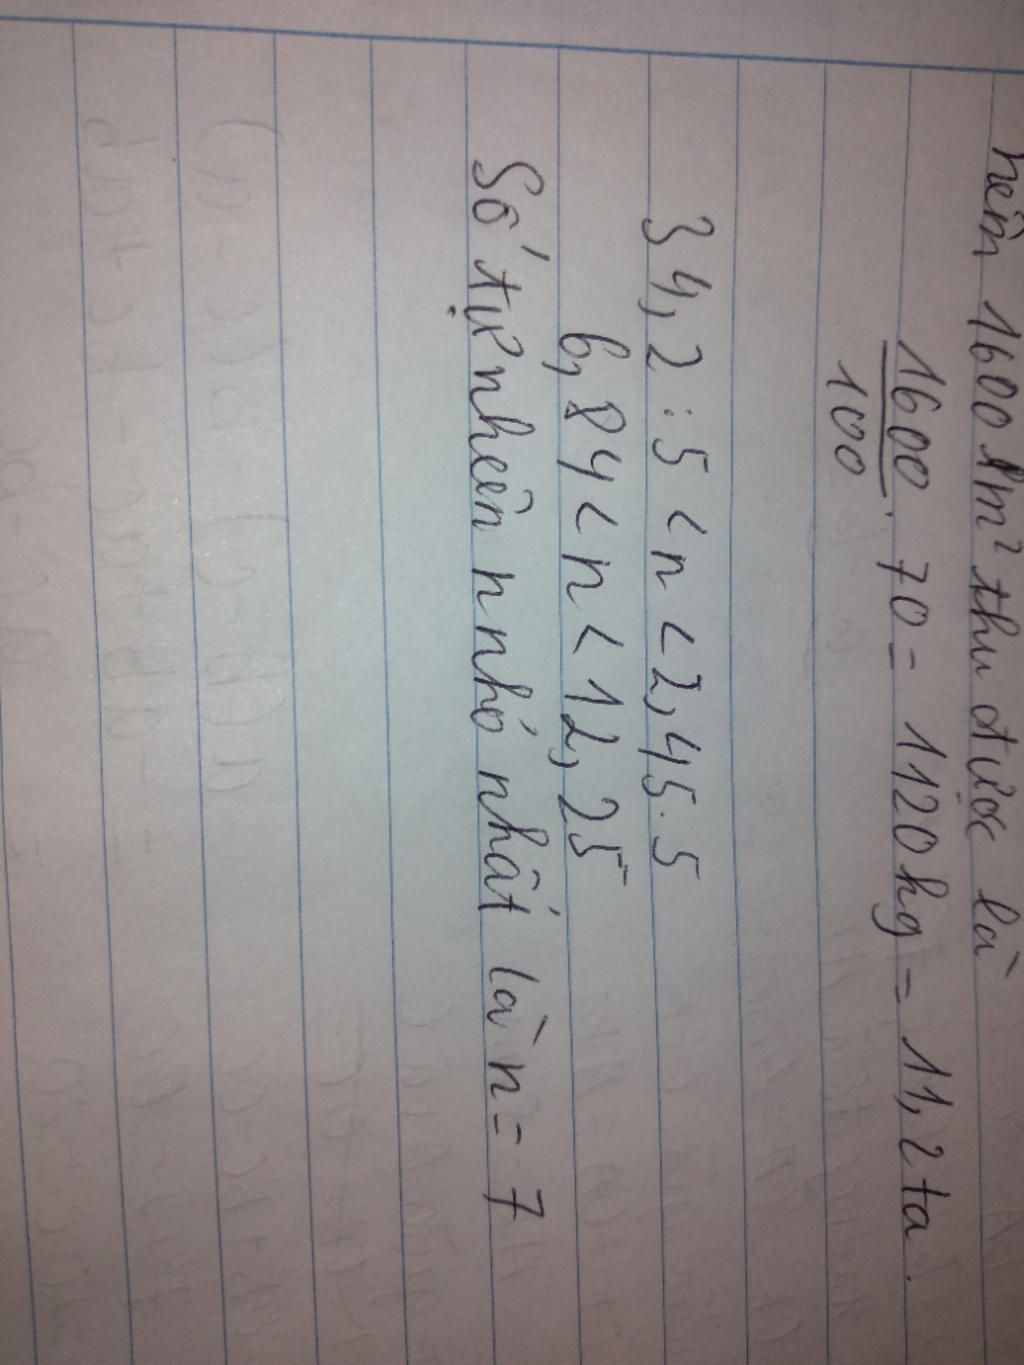 nếm 1600 m² thu được là
1600/100 . 70 = 1120 kg = 11,2 tạ.
34,2 : 5 < n < 2,45 . 5
6,84 < n < 12,25
Số tự nhiên n nhỏ nhất là n = 7